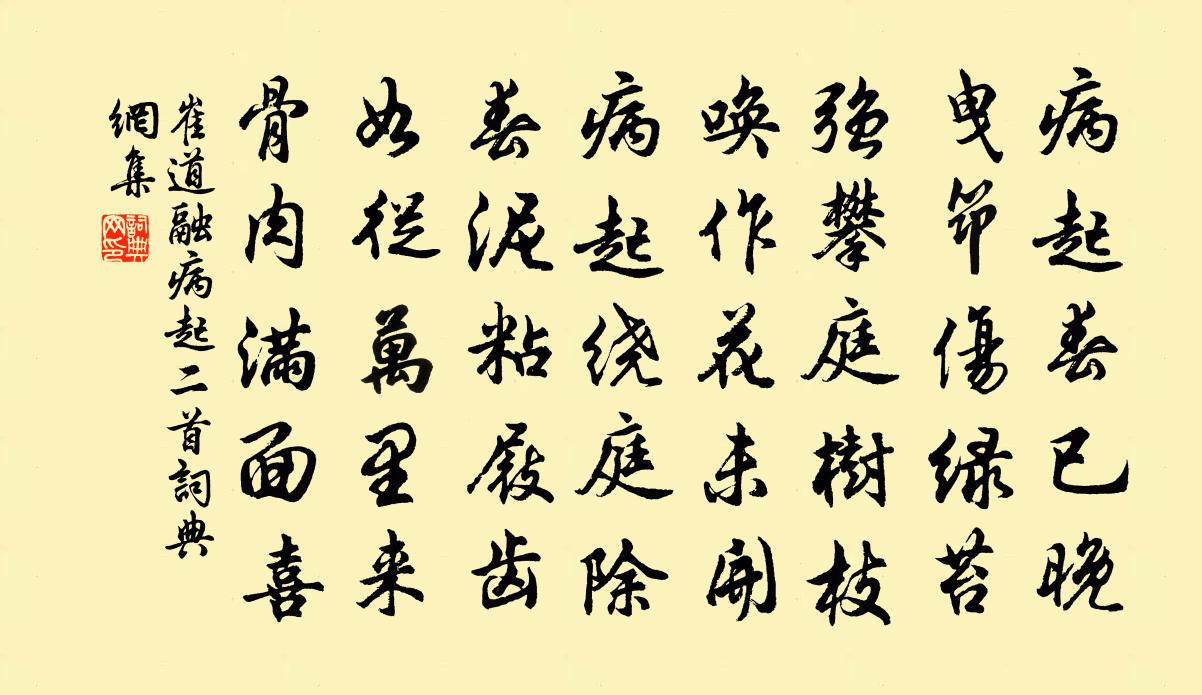 病起春已晚
曳笻傷绿苔
强攀庭樹枝
唤作花未開
病起绕庭除
春泥粘屐齿
如從萬里来
骨肉满面喜
崔道融病起二首詞典
網集
詞典
网印